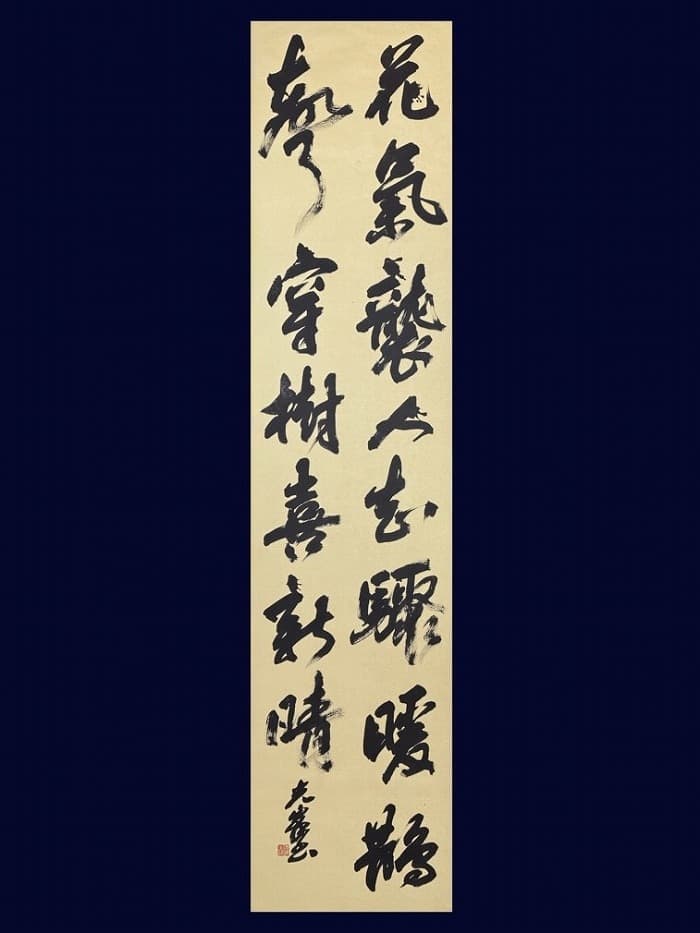 花氣襲人知驟暖鵲
聲穿樹喜新晴